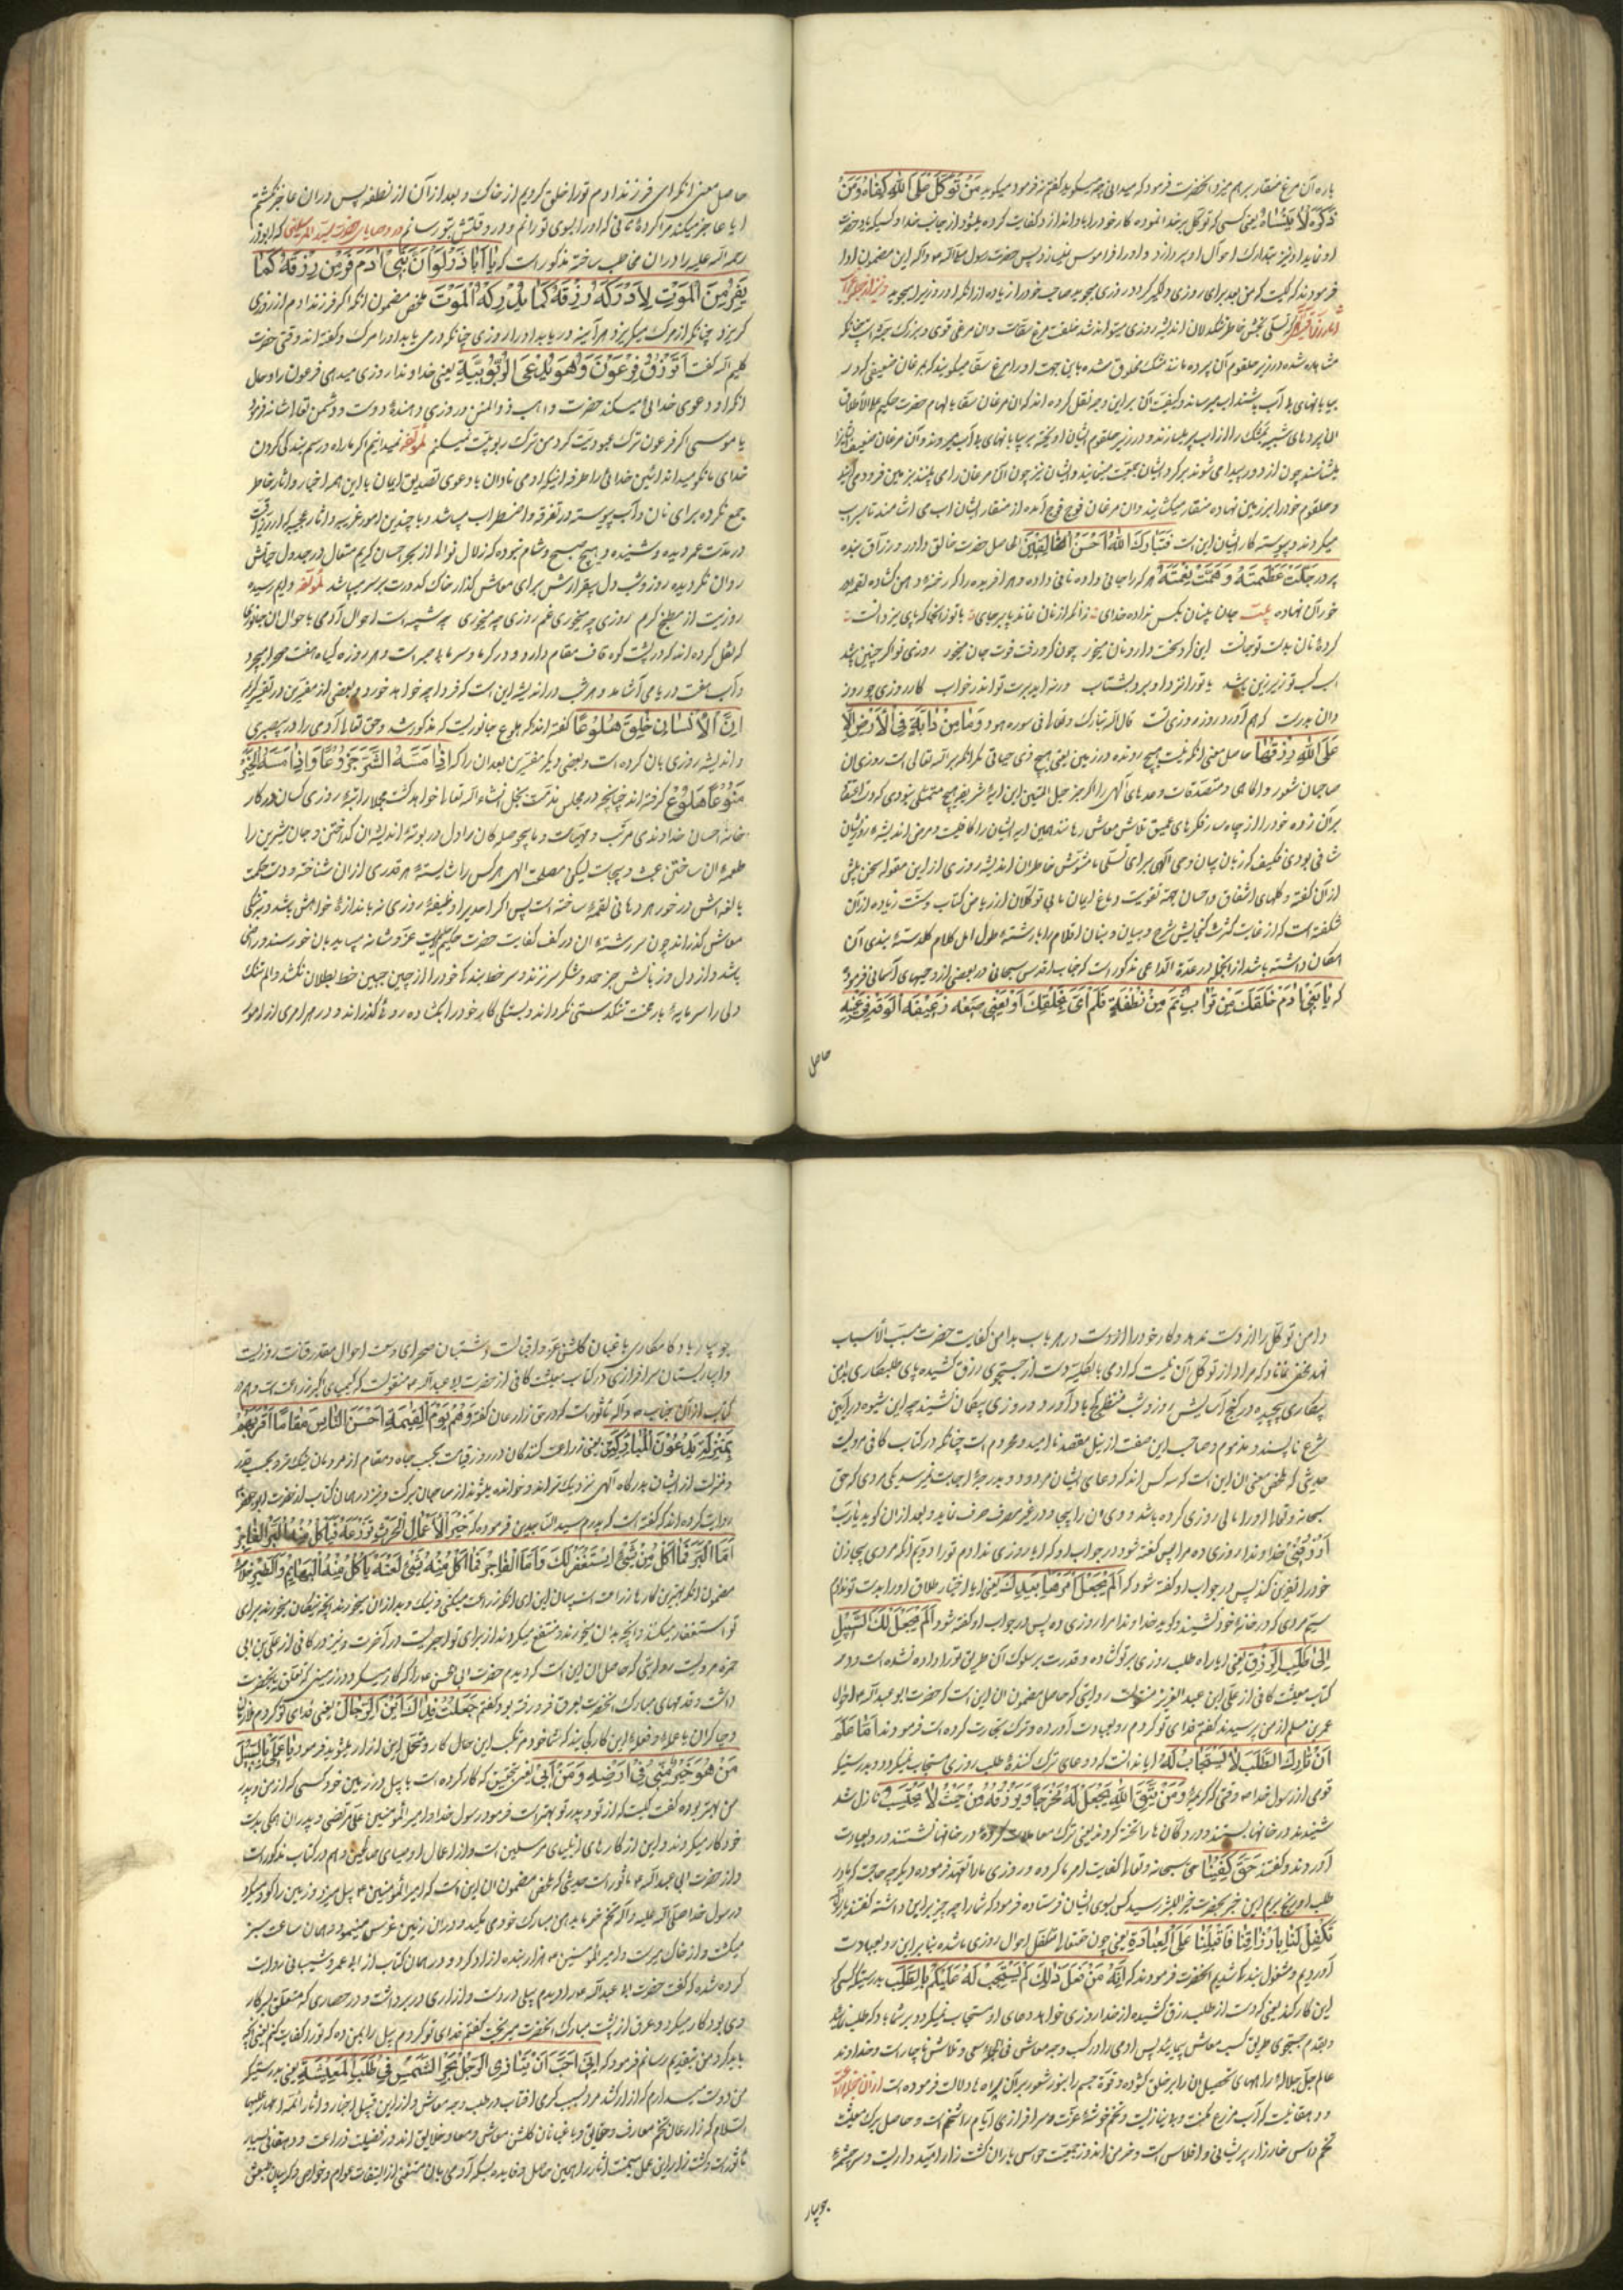 باره آن مرغ منقار بر هم میزد آنحضرت فرمود که میدانی چه میگوید گفتم نه فرمود میگوید مَنْ تَوَكَّلَ عَلَی اللهِ كَفاهُ وَمَنْ
ذَكَرَهُ لاٰ يَنْساهُ یعنی کسی که توکل بر خدا نموده کار خود را باو اندازد کفایت کرده میشود از جانب خدا و کسی که یاد حضرت
او نماید او نیز بتدارک احوال او پردازد و او را فراموش ننماید پس حضرت رسول
فرمودند که کیست که من بعد برای روزی دلگیر گردد روزی میجوید صاحب خود را زیاده از آنکه او روزی را میجوید
تسلی بخش خاطر تنگدلان اندیشه روزی میتواند شد خلقت مرغ سقاست و آن مرغی قوی و بزرگ جثه است چنانکه
مشاهده شده در زیر حلقوم آن پرده مانند مشک مخلوق شده باین جهت او را مرغ سقا میگویند که مرغان ضعیفی که در
بیابانهای بی آب باشند آب میرساند و کیفیت آن بر این وجه نقل کرده اند که آن مرغان سقا بالهام حضرت حکیم علی الاطلاق
میشناسند چون از دور پیدا میشوند بر گرد ایشان جمعیت مینمایند و ایشان نیز چون آن مرغان را می بینند بزمین فرود می آیند
و حلقوم خود را بر زمین نهاده منقار میگشایند و آن مرغان فوج فوج آمده از منقار ایشان آب می آشامند تا سیراب
میگردند و پیوسته کار ایشان این است فَتَبارَكَ اللهُ اَحْسَنُ الْخالِقینَ الحاصل حضرت خالق داور و رزاق بنده
پرور جَلَّتْ عَظَمَتُهُ وَ عَمَّتْ نِعْمَتُهُ هر کرا جانی داده نانی داده و هر آفریده را که رخنه دهن گشاده لقمه در
خور آن نهاده بیت جان بیَ نان بکس نداده خدای زانکه از نان بماند جان بر جای
کرده نان بدست تو جانت این گرو سخت دار و نان میخور چون گرو رفت قوت جان میخور روزی تو اگر بچین باشد
اسب کسب تو زیر زین باشد یا ترا نزد او برد بشتاب ورنه او بر تو اندر خواب کار روزی چو روز
دان بدرست که هم آورد روز روزی تست قال الله تبارک و تعالی فی سوره هود وَ ما مِنْ دابَّةٍ فِی الْاَرْضِ اِلّا
عَلَی اللهِ رِزْقُها حاصل معنی آنکه نیست هیچ رونده در زمین یعنی هیچ ذی حیاتی مگر آنکه بر الله تعالی است روزی آن
صاحبان شعور و آگاهی و مصدقان وعده های الهی را اگر جز حبل المتین این آیه شریفه هیچ متمسکی نبودی که دست اعتقاد
بر آن زده خود را از چاهسار فکرهای عمیق تلاش معاش رهانند همین آیه ایشان را کافی و مرض اندیشه روزی ایشان
شافی بودی فکیف که زبان بیان وحی الهی برای تسلی مشوش خاطران اندیشه روزی از این مقوله سخن بیش
از آن گفته و گلهای اشفاق و احسان جهة تقویت دماغ ایمان بی توکلان از ریاض کتاب و سنت زیاده از آن
شکفته است که از غایت کثرت گنجایش شرح و بیان و بنان اقلام را با رشته طول امل کلام گلدسته بندی آن
امکان داشته باشد از آنجمله در عدة الداعی مذکور است که جناب اقدس سبحانی در بعضی از وحیهای آسمانی فرموده
که یَا بَنِی آدَمَ خَلَقْتُكَ مِنْ تُرابٍ ثُمَّ مِنْ نُطْفَةٍ فَلَمْ اَعْیَ بِخَلْقِكَ اَوَ یُعْیینی رَغیفٌ
حاصل
حاصل معنی آنکه ای فرزند آدم ترا خلق کردیم از خاک و بعد از آن از نطفه پس در آن عاجز نگشتم
آیا عاجز میکند مرا گرده نانی که او را بسوی تو رانم و در وقتش بتو رسانم و در وصایای حضرت سید المرسلین که ابوذر
رحمه الله علیه را در آن مخاطب ساخته مذکور است که یا اَباذَرٍ لَوْ اَنَّ بَنی اٰدَمَ فَرَّ مِنْ رِزْقِهِ كَما
یَفِرُّ مِنَ الْمَوْتِ لَاَدْرَكَهُ رِزْقُهُ كَما یُدْرِكُهُ الْمَوْتُ ملخص مضمون آنکه اگر فرزند آدم از روزی
گریزد چنانکه از مرگ میگریزد هر آینه دریابد او را روزی چنانکه درمی یابد او را مرگ و گفته اند وقتی حضرت
کلیم الله گفت اَتَرْزُقُ فِرْعَوْنَ وَهُوَ یَدَّعِی الرُّبُوبِیَّةَ یعنی خداوندا روزی میدهی فرعون را و حال
آنکه او دعوی خدائی میکند حضرت واهب ذو المنن و روزی دهنده دوست و دشمن تعالی شانه فرمود
یا موسی اگر فرعون ترک عبودیت کرد من ترک ربوبیت نمیکنم لمؤلفه نمیدانیم اگر ما راه و رسم بندگی کردن
خدای ما نکو میداند آئین خدائی را طرفه اینکه آدمی نادان با دعوی تصدیق ایمان باین همه اخبار و آثار خاطر
جمع نکرده برای نان و آب پیوسته در تفرقه و اضطراب میباشد و با چندین امور غریبه و آثار عجیبه که از رزاقیت
در مدت عمر دیده و شنیده و هیچ صبح و شام نبوده که زلال نواله از بحر احسان کریم متعال در جدول حیاتش
روان نگردیده روز و شب دل بیقرارش برای معاش گذار خاک کدورت بر سر میپاشد لمؤلفه دایم رسیده
روزیت از مطبخ کرم روزی چه میخوری غم روزی چه میخوری چه شبیه است احوال آدمی باحوال آن جانوری
که نقل کرده اند که در پشت کوه قاف مقام دارد و در گرما و سرما بی صبر است و هر روزه گیاه هفت صحرا میچرد
و آب هفت دریا می آشامد و هر شب در اندیشه این است که فردا چه خواهد خورد و بعضی از مفسرین در تفسیر کریمه
اِنَّ الْاِنْسانَ خُلِقَ هَلُوعاً گفته اند که هلوع جانوریست که مذکور شد و حق تعالی آدمی را در بیصبری
و اندیشه روزی بآن کرده است و بعضی دیگر مفسرین بعد آن را که اِذا مَسَّهُ الشَّرُّ جَزُوعاً وَ اِذا مَسَّهُ الْخَیْرُ
مَنُوعاً هَلُوع گرفته اند چنانچه در مجلس مذمت بخل انشاء الله تعالی خواهد گشت مجملا راتبه روزی کسان در کار
خانه احسان خداوندی مرتب و مهیاست و ما بیحوصلگان را دل در بوته اندیشه آن گداختن و جان شیرین را
طعمه آن ساختن عبث و بیجاست لیکن مصلحت الهی هر کس را شایسته هر قدری از آن شناخته و دست حکمت
بالغه اش در خور هر دهانی لقمه ساخته است پس اگر احدی را وظیفه روزی نه باندازه خواهش باشد و بتنگی
معاش گذراند چون سر رشته آن در کف کفایت حضرت حکیم علی الاطلاق عز و شانه میباید بآن خورسند و راضی
باشد و از دل و زبانش جز حمد و شکر سر نزند و سر خط بندگی خود را از چین جبین خط بطلان نکشد و الم تنگ
دلی را سرمایه بار محنت تنگدستی نگرداند و بستگی کار خود را بگشاده روئی گذراند و در هر امری از امور
دامن توکل را از دست ندهد و کار خود را از دست در هر باب بدامن کفایت حضرت مسبب الاسباب
نهد مخفی نماناد که مراد از توکل آن نیست که آدمی بالکلیه دست از جستجوی رزق کشیده پای طلبکاری بدامن
بیکاری پیچیده در کنج آسایش روز و شب منتظر گنج باد آورد و روزی بیگمان نشیند چه این شیوه در آیین
شرع ناپسند و مذموم و صاحب این صفت از نیل مقصد ناامید و محروم است چنانکه در کتاب کافی مرویست
حدیثی که ملخص معنی آن این است که سه کس اند که دعای ایشان مردود و بدرجه اجابت نمیرسد یکی مردی که حق
سبحانه و تعالی او را مالی روزی کرده باشد و وی آن را بیجا و در غیر مصرف صرف نماید و بعد از آن گوید یا رَبِّ
اُرْزُقْنی خداوندا روزی ده مرا پس گفته شود در جواب او که آیا روزی ندادم ترا دویم آنکه مردی بیجا زن
خود را نفرین کند پس در جواب او گفته شود که اَلَمْ نَجْعَلْ اَمْرَها بِیَدِكَ یعنی آیا اختیار طلاق او را بدست تو ندادم
سیم مردی که در خانه خود نشیند و گوید خداوندا مرا روزی ده پس در جواب او گفته شود اَلَمْ نَجْعَلْ لَكَ السَّبیلَ
اِلی طَلَبِ الرِّزْقِ یعنی آیا راه طلب روزی بر تو نگشاده و قدرت بر سلوک آن طریق ترا داده نشده است و در
کتاب معیشت کافی از علی ابن عبد العزیز منقولست روایتی که حاصل مضمون آن این است که حضرت ابو عبد الله احوال
عمر بن مسلم از من پرسیدند گفتم فدای تو گردم رو بعبادت آورده و ترک تجارت کرده است فرمودند اَما عَلِمَ
اَنَّ تارِكَ الطَّلَبِ لا یُسْتَجابُ لَهُ آیا ندانست که دعای ترک کننده طلب روزی مستجاب نمیگردد بدرستیکه
قومی از رسول خدا وقتی که کریمه وَ مَنْ یَتَّقِ اللهَ یَجْعَلْ لَهُ مَخْرَجاً وَ یَرْزُقْهُ مِنْ حَیْثُ لا یَحْتَسِبُ نازل شد
شنیدند در خانها بستند و در دکان ها را تخته کردند یعنی ترک معاملات کرده در خانها نشستند و رو بعبادت
آوردند و گفتند حَقّ كُفینا حق سبحانه و تعالی کفایت امر ما کرده و روزی ما را تعهد فرموده دیگر چه حاجت که ما در
طلب او رنج بریم این خبر بحضرت خیر البشر رسید کس بسوی ایشان فرستاده فرمود که شما را چه چیز بر این داشته گفتند یا رسول الله
تُكُفِّلَ لَنا بِاَرْزاقِنا فَاَقْبَلْنا عَلَی الْعِبادَةِ یعنی چون حقتعالی متکفل احوال روزی ما شده بنابر این رو بعبادت
آوردیم و مشغول بندگی شدیم آنحضرت فرمودند که اِنَّهُ مَنْ فَعَلَ ذلِكَ لَمْ یُسْتَجَبْ لَهُ عَلَیْكُمْ بِالطَّلَبِ بدرستیکه کسی که
این کار کند یعنی که دست از طلب رزق کشیده از خدا روزی خواهد دعای او مستجاب نمیگردد و بر شما باد که طلب نمائید
و بقدم جستجوی طریق کسب معاش پیمائید پس آدمی را در کسب وجه معاش فی الجمله سعی و تلاش ناچار است و خداوند
عالم جل جلاله راههای تحصیل آن را بر خلق گشوده و قوة جسم را بنور شعور بر آن راه ها دلالت فرموده است از آن جمله
و دهقانیست که آب مزرع مکنت و بی نیازیست و تخم خوشه عزت و سرافرازی ایام را شخم است و حاصل برگ معیشت
تخم داس خارزار پریشانی و افلاس است و خرمن اندوز جمعیت حواس باران کشت زار امید واریست و سرچشمه
جویبار
جویبار کامکاری باغبان گلشن عزو اقبالست و دشتبان صحرای وسعت احوال مقدر قانت روزیست
و آبیار بستان سرافرازی در کتاب معیشت کافی از حضرت ابی عبد الله منقولست که کیمیای اکبر زراعت است و هم در
کتاب از آن جناب مأثور است که در حق زارعان گفته وَ هُمْ یَوْمَ الْقِیٰمَةِ اَحْسَنُ النّاسِ مَقاماً وَ اَقْرَبُهُمْ
مَنْزِلَةً یُدْعَوْنَ الْمُبارَكینَ یعنی زراعت کنندگان در روز قیامت بحسب جاه و مقام از مردمان نیک تر و بحسب قدر
و منزلت از ایشان بدرگاه الهی نزدیک تراند و خوانده میشوند از صاحبان برکت و نیز در همان کتاب از حضرت ابو جعفر
روایت کرده اند که گفته است که پدرم سید الساجدین فرموده که خَیْرُ الْاَعْمالِ الْحَرْثُ تَزْرَعُهُ فَیَأْكُلُ مِنْهُ الْبَرُّ وَ الْفاجِرُ
اَمَّا الْبَرُّ فَما اَكَلَ مِنْ شَیْءٍ اِسْتَغْفَرَ لَكَ وَ اَمَّا الْفاجِرُ فَما اَكَلَ مِنْهُ شَیْءٌ لَعَنَهُ یَأْكُلُ مِنْهُ الْبَهائِمُ وَ الطَّیْرُ
مضمون آنکه بهترین کارها زراعت است بیان این ای آنکه زراعت میکنی و نیک و بد از آن میخورند آنچه نیکان میخورند برای
تو استغفار میکنند و آنچه بدان میخورند و منتفع میگردند از برای تو اجریست در آخرت و نیز در کافی از علی بن ابی
حمزه مرویست روایتی که حاصل آن این است که دیدم حضرت ابی الحسن را که کار میکرد در زمینی که تعلق بآنحضرت
داشت و قدمهای مبارک آنحضرت بعرق فرو رفته بود گفتم جُعِلْتُ فِداكَ اَیْنَ الرِّجالُ یعنی فدای تو گردم
و چاکران یا عمله و فعله این کار کجایند که شما خود مرتکب این حال کار و متحمل این آزار میشوید فرمود یا عَلیُّ بِالْیَدِ
مَنْ هُوَ خَیْرٌ مِنّی فی اَرْضِهِ وَ مِنْ اَبی یعنی بتحقیق که کار کرده است با بیل در زمین خود کسی که از من و پدر
من بهتر بوده گفت کیست که از تو و پدر تو بهتر است فرمود رسول خدا و امیر المؤمنین علی مرتضی و پدران همگی بدست
خود کار میکردند و این از کارهای انبیای مرسلین است و از اعمال اوصیای صالحین و هم در کتاب مذکور است
و از حضرت ابی عبد الله مأثور است حدیثی که ملخص مضمون آن این است که امیر المؤمنین بیل میزد و زمین را گود میکرد
و رسول خدا صلی الله علیه و آله تخم خرما بدهن مبارک خود می مکید و در آن زمین غرس مینمود و در همان ساعت سبز
میگشت و از خاک میرست و امیر المؤمنین هزار بنده آزاد کرد و در همان کتاب از ابی عمرو شیبانی روایت
کرده شده که گفت حضرت ابی عبد الله را دیدم بیلی در دست و ازاری در بر داشت و در حصاری که متعلق بسرکار
وی بود کار میکرد و عرق از پشت مبارک آنحضرت میریخت گفتم فدای تو گردم بیل را بمن ده که ترا کفایت کنم یعنی آنچه
باید کرد من بتقدیم رسانم فرمود که اِنّی اُحِبُّ اَنْ یَتَأَذَّی الرَّجُلُ بِحَرِّ الشَّمْسِ فی طَلَبِ الْمَعیشَةِ یعنی بدرستیکه
من دوست میدارم که آزار کشد مرد بسبب گرمی آفتاب در طلب وجه معاش و از این قبیل اخبار و آثار ائمه اطهار علیهم
السلام که زارعان تخم معارف و حقایق و باغبانان گلشن معاش و معاد خلایق اند در فضیلت زراعت و دهقانی بسیار